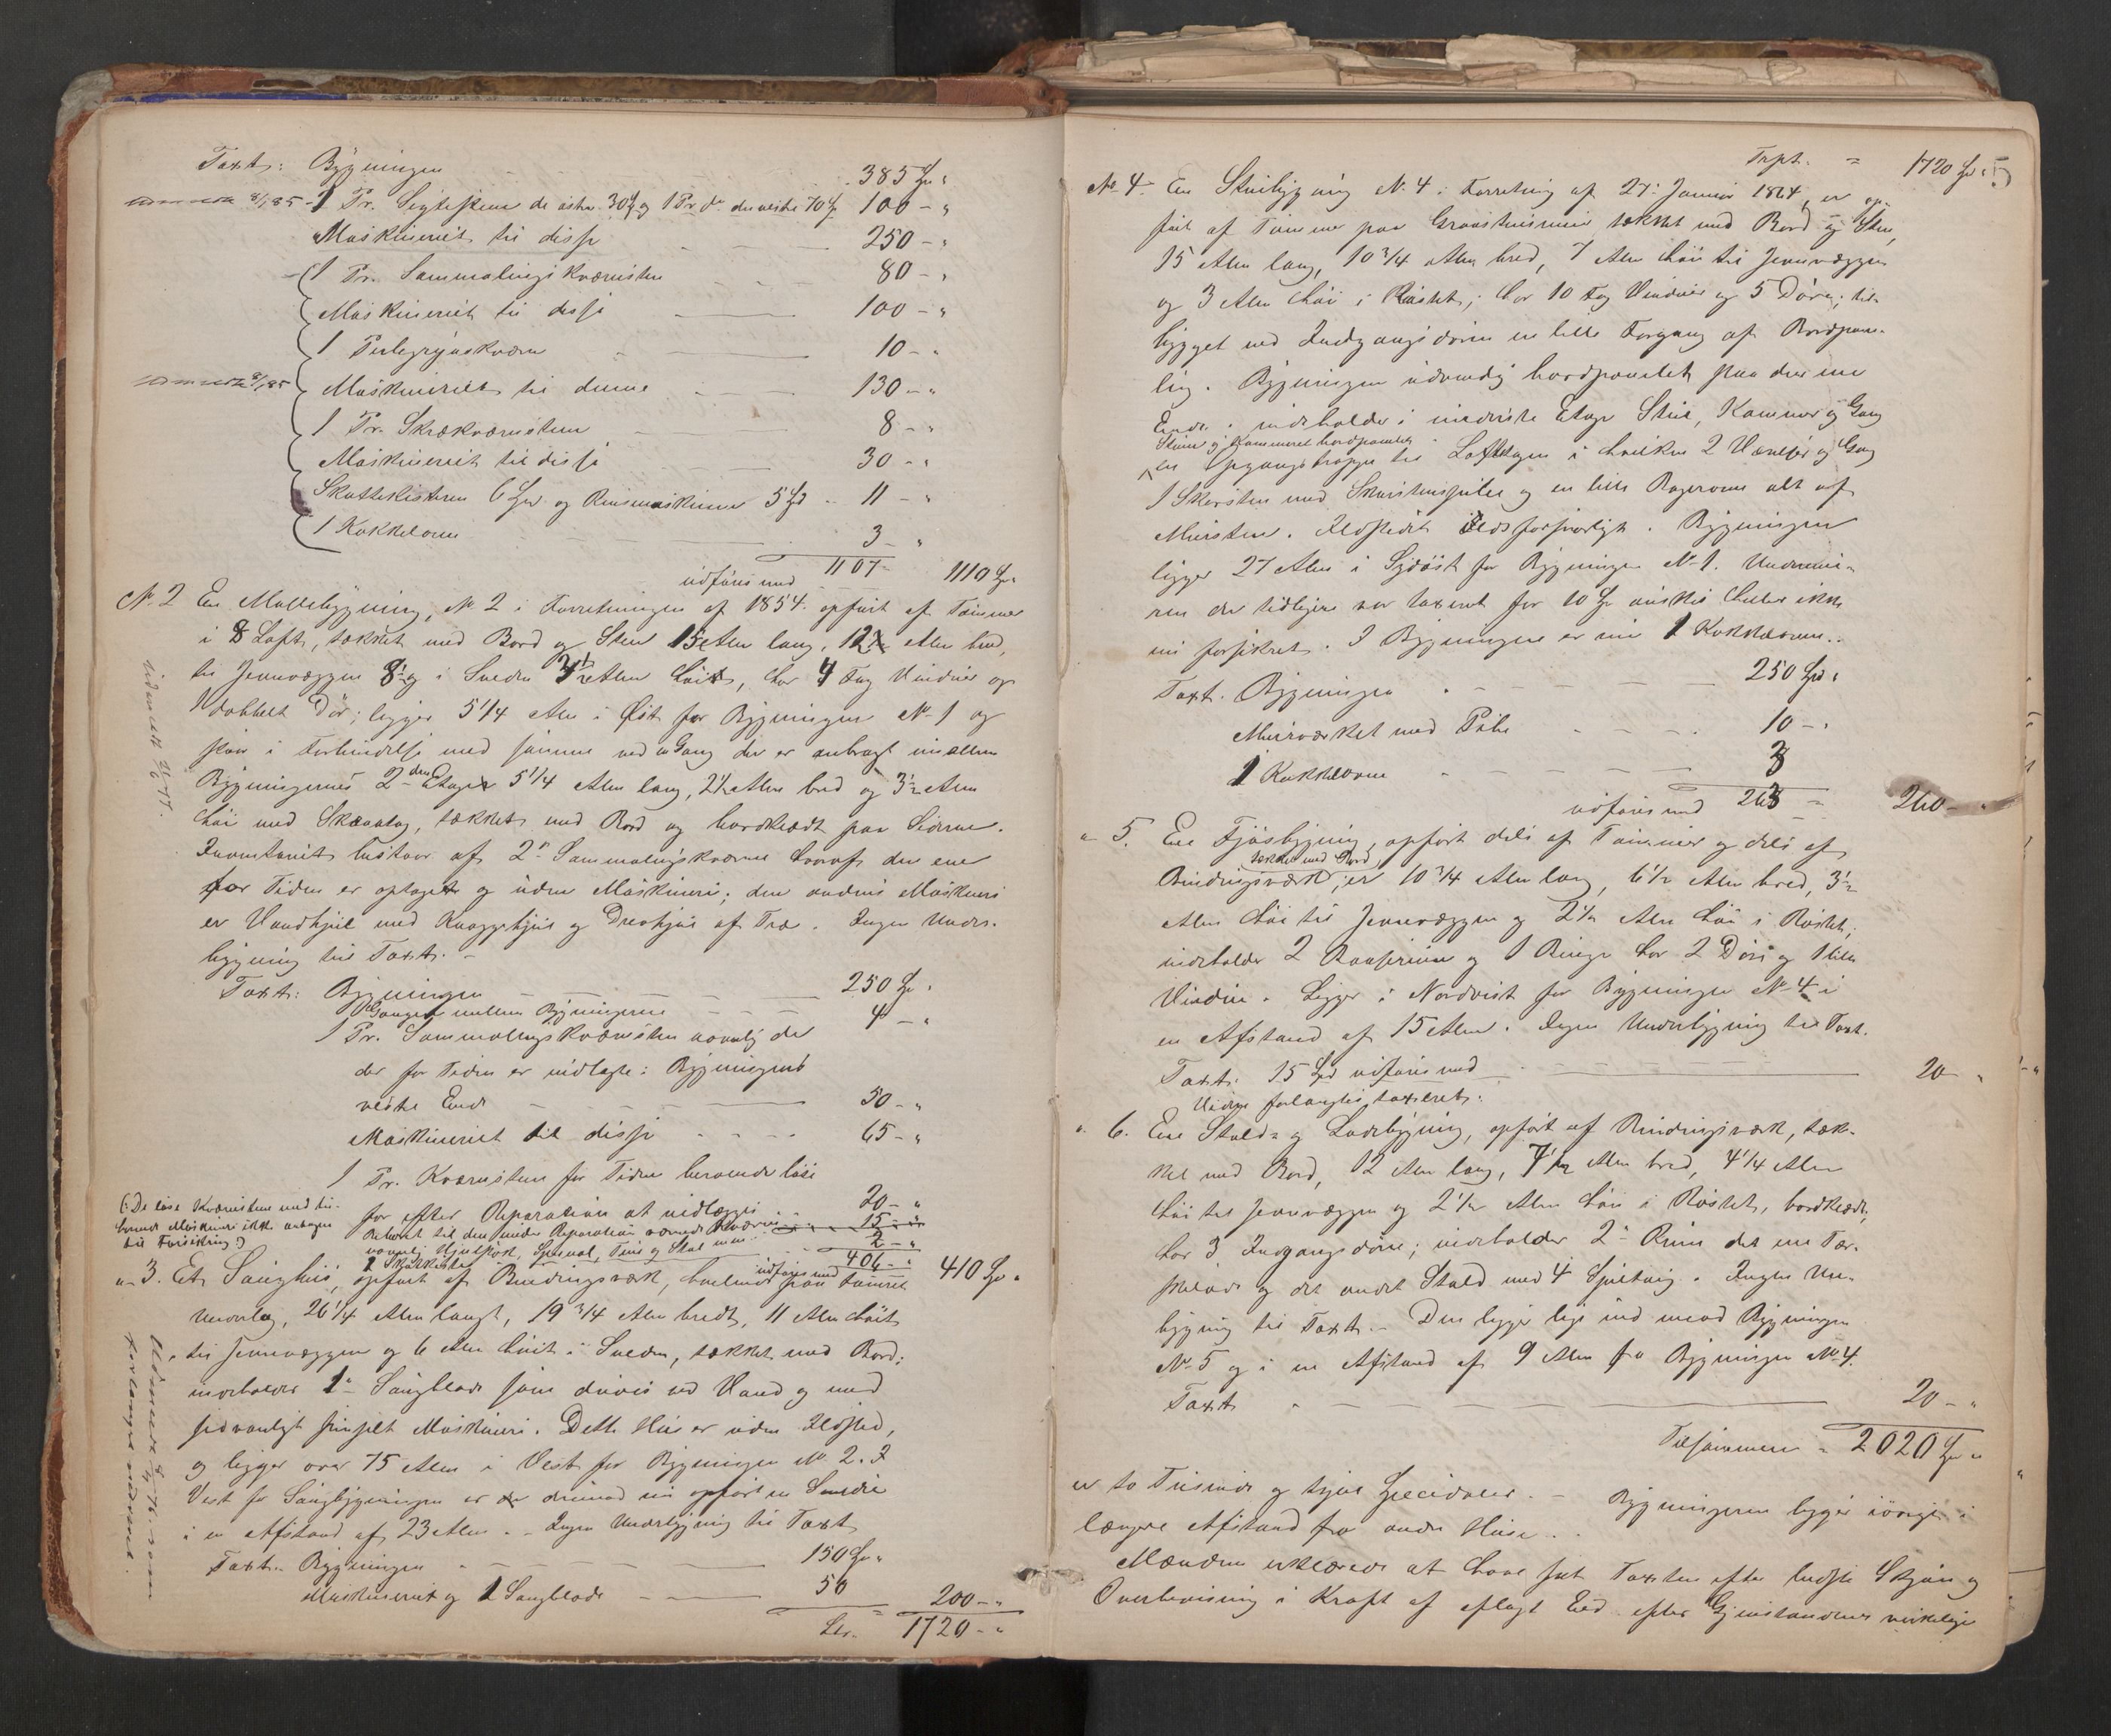 Taxt: Bygningen 385 Spd "
1 Pr. Sigtestene de østre 30 Spd og 1 Pr do de vestre 70 Spd 100 - "
Maskineriet til disse 250 - "
1 Pr. Sammalingskværnstene 80 - "
Maskineriet til disse 100 - "
1 Perlegrynskværn 10 - "
Maskineriet til denne 130 - "
1 Pr. Skrækværnstene 8 - "
Maskineriet til disse 30 - "
6 Spd og Rensemaskinen 5 Spd 11 - "
1 Kakkelovn 3 - "
udføres med 1107 - 1110 Spd "
No. 2 En Møllebygning, No 2 i Forretningen af 1854. opført af Tømmer
i 8 Loft, tækket med Bord og Sten 15 Alen lang, 12 Alen bred,
til Jevnvæggen 8½ og i Sveden 3½ Alen høit, har 4 Fag Vinduer og
1 dobbelt Dør; ligger 5 1/4 Alen i Øst for Bygningen No 1 og
staar i Forbindelse med samme ved en Gang der er anbragt imellem
Bygningernes 2den Etage 5 1/4 Alen lang, 2½ Alen bred og 3½ Alen
høi med Skraatag, tækket med Bord og bordklædt paa Siderne.
Inventariet bestaar af 2de Sammalingskværne hvoraf den ene
for Tiden er optaget og uden Maskineri; den andens Maskineri
er Vandhjul med Knaggehjul og Drevhjul af Træ. Ingen Under-
bygning til Taxt. -
Taxt: Bygningen 250 Spd "
Gangen mellem Bygningerne 4 - "
1 Pr. Sammalingskværnstene navnlig de
der for Tiden er indlagte i Bygningens
vestre Ende 50 - "
Maskineriet til disse 65 - "
1 Pr. Kværnstene for Tiden beroende løse
for efter Reparation at indlægges 20 - "
Rekvisit til den under Reparation værende Kværn 15 - "
navnlig Hjulstok, Spindel, Tein og Staal m.m. 2 - "
406 - "
(: De løse Kværnstene med til-
hørende Maskineri ikke antagen
til Forsikring :)
udføres med 410 Spd "
" 3. Et Saughuus, opført af Bindingsværk, hvilende paa tømret
Underlag, 26 1/4 Alen langt, 19 3/4 Alen bredt, 11 Alen høit
til Jevnvæggen og 6 Alen høit i Sveden, tækket med Bord;
indeholder 1 Saugblad som drives ved Vand og med
sedvanligt simpelt Maskineri. Dette Huus er uden Ildsted,
og ligger over 75 Alen i Vest for Bygningen No 2. I
Vest for Saugbygningen er derimod nu opført en Smedie
i en Afstand af 23 Alen. - Ingen Underbygning til Taxt
Taxt. Bygningen 150 Spd "
Maskineriet og 1 Saugblad 50 200 - "
Ltr. = 1720 - "
Udmeldt 8/4 76. som
forlangt udmeldt.
Trpt. = 1720 Spd "
No. 4. En Stuebygning No. 4 i Forretning af 27de Januar 1864, er op-
ført af Tømmer paa Graastensmur tækket med Bord og Sten,
15 Alen lang, 10 3/4 Alen bred, 7 Alen høi til Jevnvæggen
og 3 Alen høi i Røstet; har 10 Fag Vinduer og 5 Døre; til-
bygget ved Indgangsdøren en liden Forgang af Bordpane-
ling. Bygningen udvendig bordpanelet paa den ene
Ende. indeholder i nederste Etage Stue, Kammer og Gang
Stuen og Kammeret bordpanelet
en Opgangstrappe til Loftetagen i hvilken 2 Værelser og Gang
1 Skorsten med Skorstenspibe og en liden Bagerovn alt af
Mursten. Ildstedet ildsforsvarligt. Bygningen
ligger 27 Alen i Sydost for Bygningen No 1. Undermu-
ren der tidligere var taxeret for 10 Spd ønskes heller ikke
nu forsikret. I Bygningen er nu 1 Kakkelovn..
Taxt. Bygningen 250 Spd "
Murværket med Pibe 10 - "
1 Kakkelovn 3
udføres med 263 - 260 - "
" 5. En Fjøsbygning, opført dels af Tømmer og dels af
tækket med Bord
Bindingsværk, er 10 3/4 Alen lang, 6½ Alen bred, 3½
Alen høi til Jevnvæggen og 2½ Alen høi i Røstet;
indeholder 2 Baaserum og 1 Binge har 2 Døre og 1 liden
Vindue. Ligger i Nordvest for Bygningen No 4 i
en Afstand af 15 Alen. Ingen Underbygning til Taxt.
Taxt: 15 Spd udføres med 20 - "
Videre forlangtes taxeret:
" 6. En Stald- og Ladebygning, opført af Bindingsværk, tæk-
ket med Bord, 12 Alen lang, 7½ Alen bred, 4 1/4 Alen
høi til Jevnvæggen og 2½ Alen høi i Røstet, bordklædt,
har 3 Indgangsdøre; indeholder 2de Rum det ene Tær-
skelade og det andet Stald med 4 Spiltoug. Ingen Un-
bygning til Taxt. - Den ligger lige ind mod Bygningen
No 5 og i en Afstand af 9 Alen fra Bygningen No 4.
Taxt 20 - "
Tilsammen = 2020 Spd "
er to Tusinde og tyve Speciedaler. - Bygningerne ligger iøvrigt i
længere Afstand fra andre Huse..
Mændene erklærede at have sat Taxten efter bedste Skjøn og
Overbevisning i Kraft af aflagt Eed efter Gjenstandenes virkelige